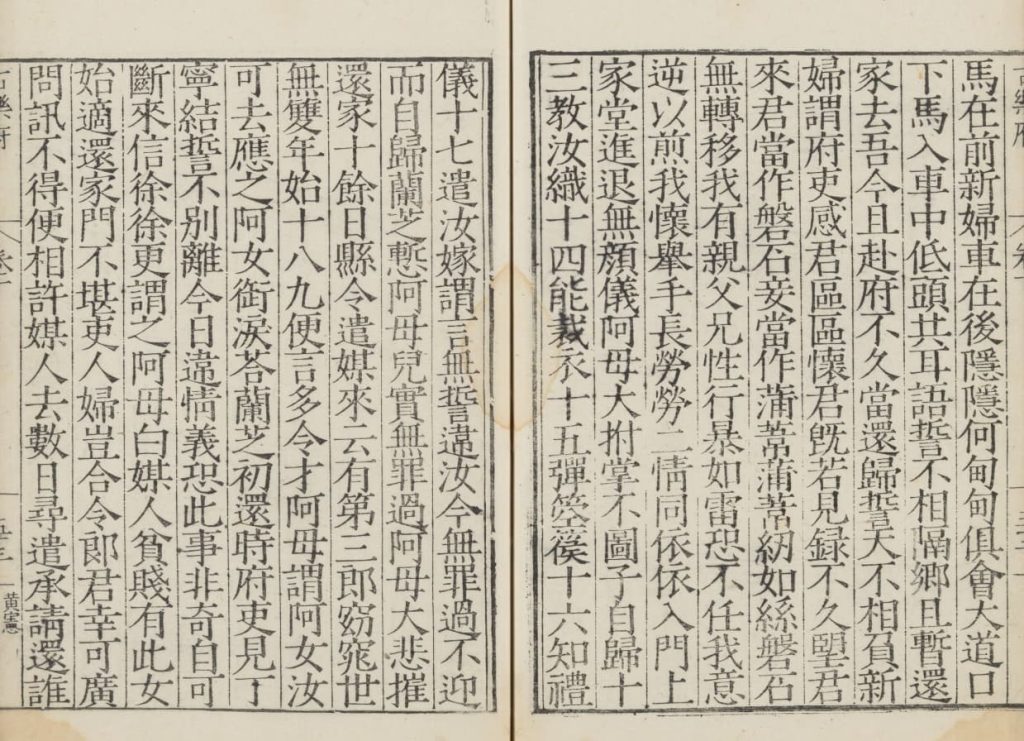 馬在前新婦車在後隱隱何甸甸俱會大道口
下馬入車中低頭共耳語誓不相隔鄉且暫還
家去吾今且赴府不久當還歸誓天不相負新
婦謂府吏感君區區懷君旣若見録不久望君
來君當作磐石妾當作蒲葦蒲葦紉如絲磐石
無轉移我有親父兄性行暴如雷恐不任我意
逆以煎我懷舉手長勞勞二情同依依入門上
家堂進退無顔儀阿母大拊掌不圖子自歸十
三教汝織十四能裁衣十五彈箜篌十六知禮
儀十七遣汝嫁謂言無誓違汝今無罪過不迎
而自歸蘭芝慙阿母兒實無罪過阿母大悲摧
還家十餘日縣令遣媒來云有第三郎窈窕世
無雙年始十八九便言多令才阿母謂阿女汝
可去應之阿女銜淚荅蘭芝初還時府吏見丁
寧結誓不別離今日違情義恐此事非奇自可
斷來信徐徐更謂之阿母白媒人貧賤有此女
始適還家門不堪吏人婦豈合令郎君幸可廣
問訊不得便相許媒人去數日尋遣承請還誰